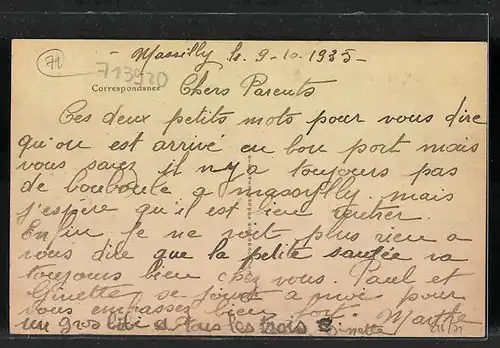 71
713920
- Massilly le 9-10.1935-
Correspondance
Chers Parents
Ces deux petits mots pour vous dire
qu'on est arrivé en bon port mais
vous savez il n'y a toujours pas
de bouboule a massylly. mais
j'espère qu'il est bien
Enfin je ne voit plus rien a
vous dire que la petite va
toujours bien chez vous. Paul et
Ginette se a moi pour
vous embrassez bien fort. Marthe
un gros bibi a tous les trois
Ginette